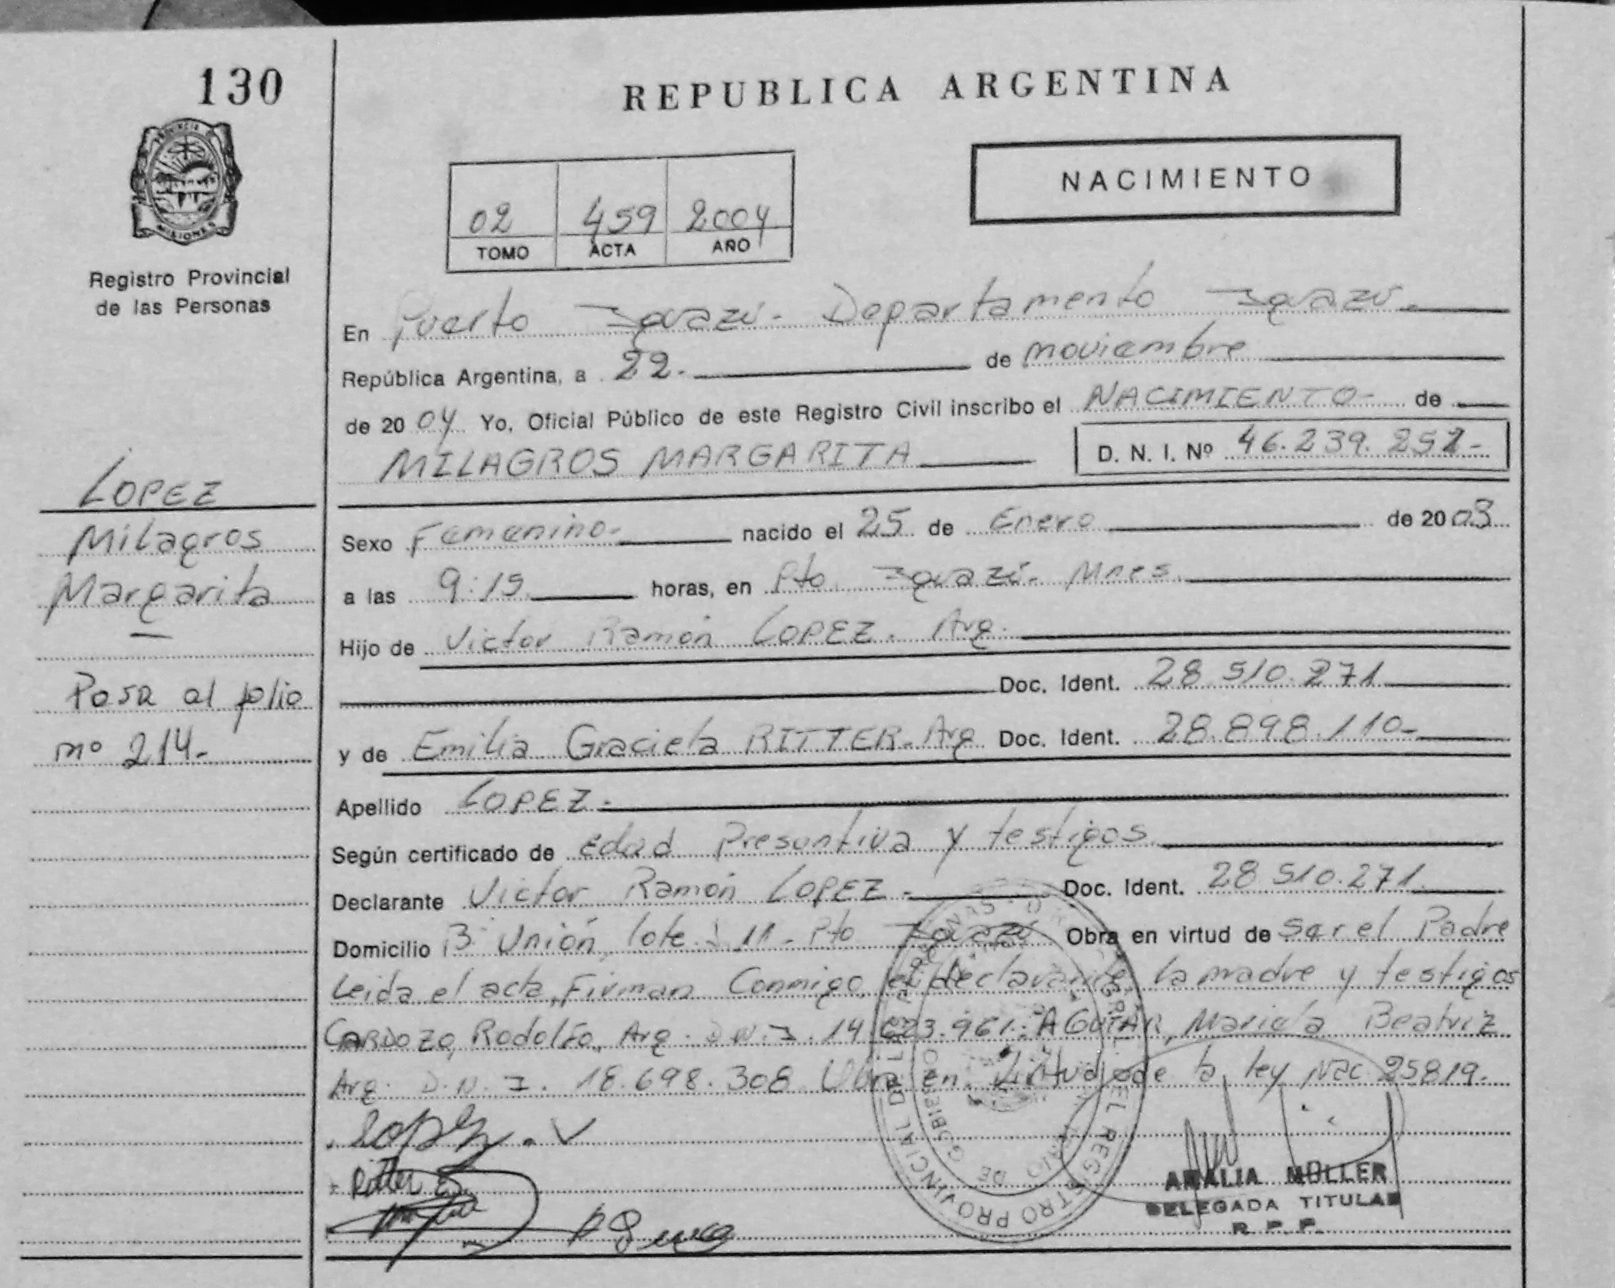 130
REPUBLICA ARGENTINA
PROVINCIA DE
MISIONES
Registro Provincial
de las Personas
NACIMIENTO
02 459 2004
TOMO ACTA AÑO
En Puerto Iguazú. Departamento Iguazú.
República Argentina, a 22. de noviembre
de 2004 Yo, Oficial Público de este Registro Civil inscribo el NACIMIENTO de
MILAGROS MARGARITA D. N. I. Nº 46.239.251-
LOPEZ
Milagros
Margarita
Pasa al folio
nº 214.-
Sexo Femenino.- nacido el 25 de Enero de 2003
a las 9:15 horas, en Pto. Iguazú. Mnes.
Hijo de Victor Ramón LOPEZ. Arg.
Doc. Ident. 28.510.271
y de Emilia Graciela RITTER. Arg Doc. Ident. 28.898.110-
Apellido LOPEZ.
Según certificado de edad Presuntiva y testigos.
Declarante Victor Ramón LOPEZ.- Doc. Ident. 28.510.271
Domicilio Bº Unión, lote 11 - Pto Iguazú Obra en virtud de Ser el Padre
Leida el acta, Firman Conmigo, el declarante, la madre y testigos
CARDOZO, Rodolfo, Arg. D.N.I. 14.623.961. AGUIAR, Mariela Beatriz
Arg. D.N.I. 18.698.308 Obra en Virtud de la ley Nac 25819.
Lopez. V
Ritter E.
AMALIA MULLER
DELEGADA TITULAR
R. P. P.